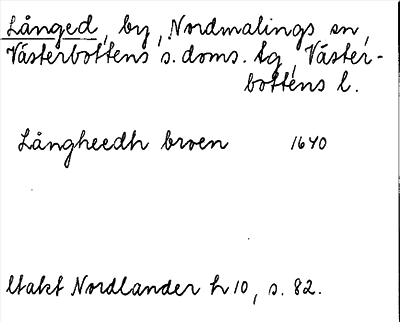 Långed, by, Nordmalings sn,
Västerbottens s. doms. tg, Väster-
bottens l.
Långheedh broen 1640
Utakt Nordlander h 10, s. 82.